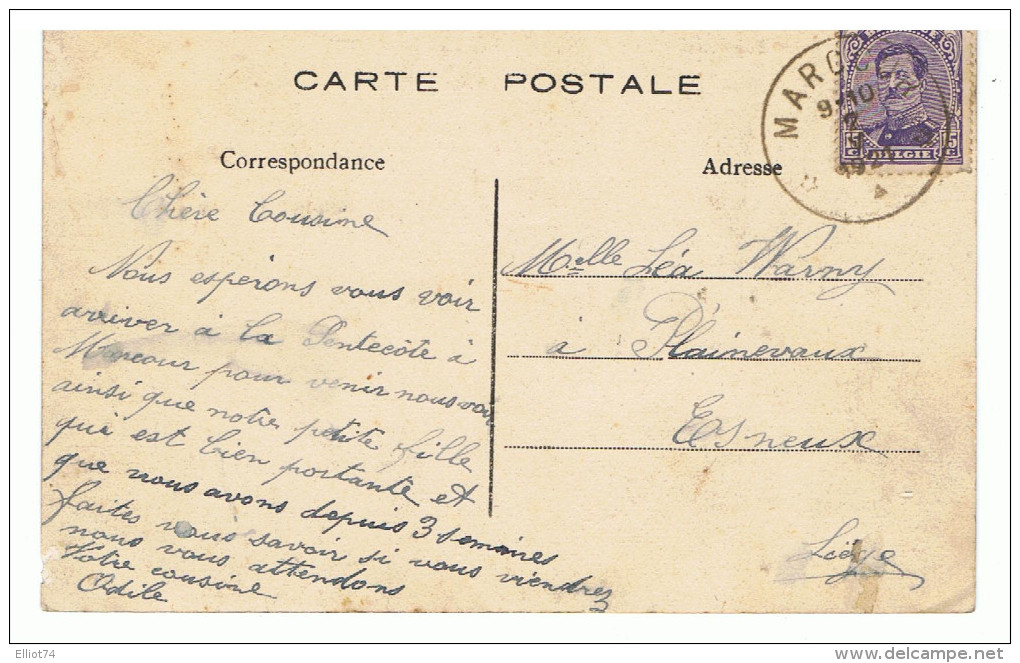 CARTE POSTALE
MARCOUR
9-10
192
15 BELGIE 15
C C
Correspondance
Adresse
Chère Cousine
Nous espérons vous voir
arriver à la Pentecôte à
Marcour pour venir nous voir
ainsi que notre petite fille
qui est bien portante et
que nous avons depuis 3 semaines
faites nous savoir si vous viendrez
nous vous attendons
Votre cousine
Odile
Melle Léa Warny
à Plainevaux
Esneux
Liége
Elliot74
delcampe.net